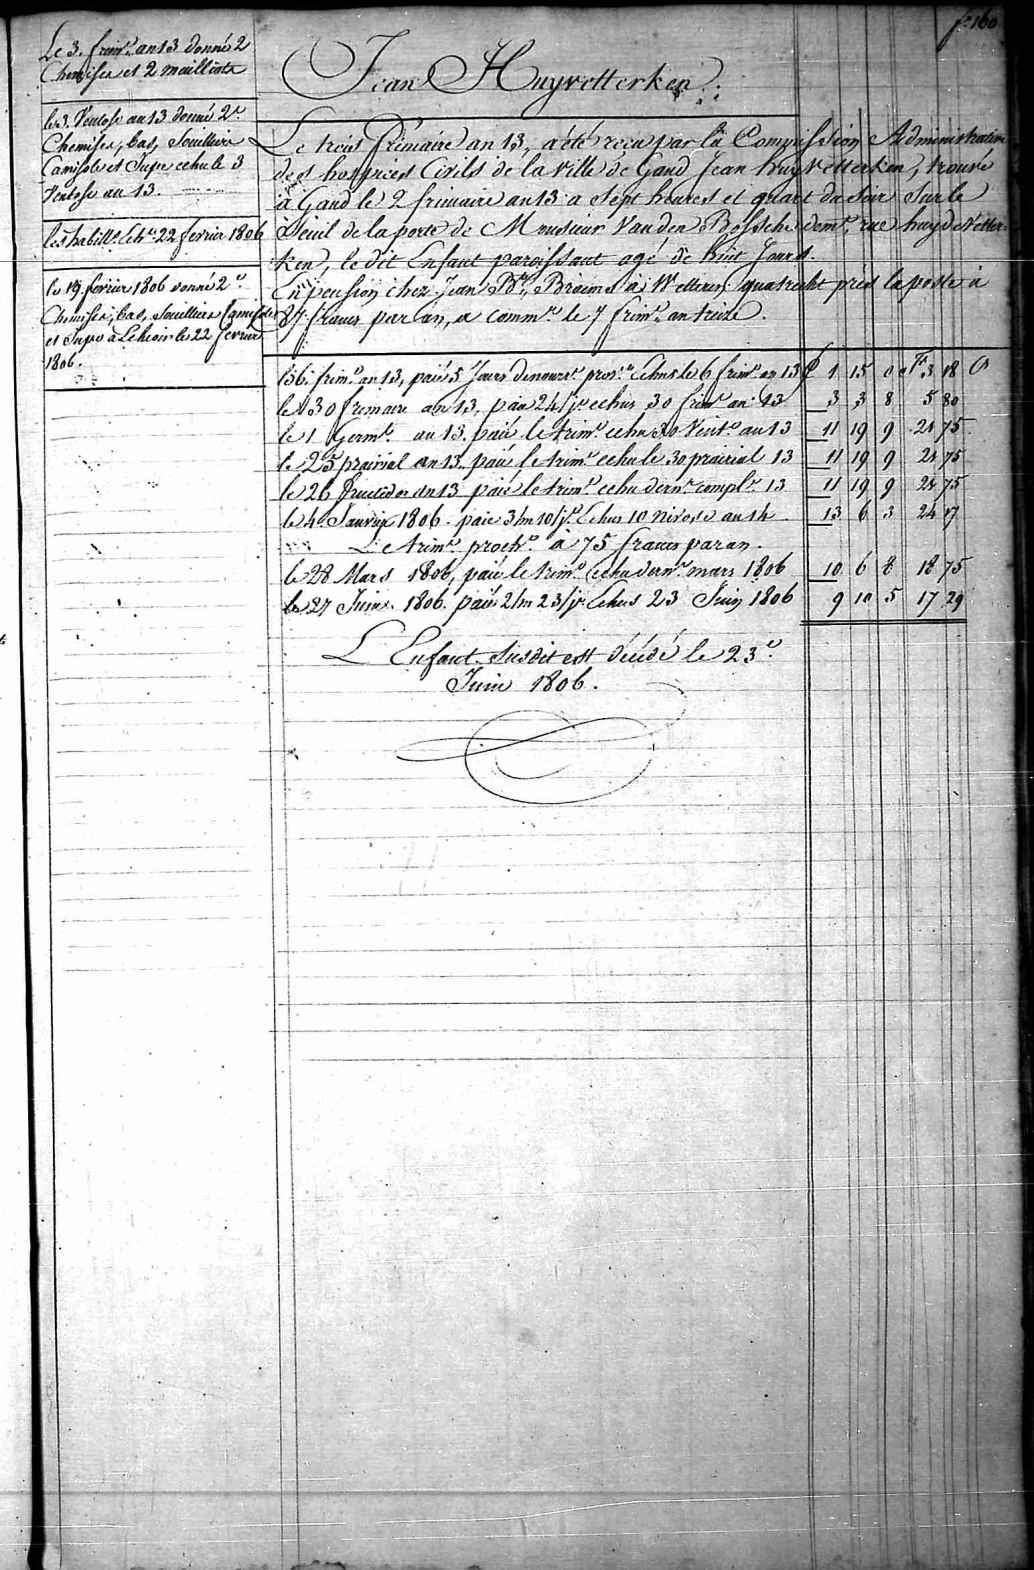 fo 160
Le 3. frimre an 13 donné 2
Chemises et 2 maillots
le 3. Ventose an 13 donné 2e
Chemises, bas, Souilliers
Camisole et Jupe echu le 3
Ventose an 13.
les habills Ech. 22 fevrier 1806
le 19 fevrier 1806 donné 2e
Chemises, bas, souilliers Camisole
et Jupe à Lehoir le 22 fevrier
1806.
Jean Huyvetterken
Le trois frimaire an 13, a été recu par la Commission Administrative
des hospices Civils de la ville de Gand Jean huyvetterken, trouvé
à Gand le 2 frimaire an 13 a Sept heures et quart du Soir Sur le
Seuil de la porte de Monsieur Vanden Bossche domt. rue huydevetter-
ken, le dit Enfant paroissant agé de huit Jours.
En pension chez Jean Bte Braems à Wetteren quatrecht près la poste à
87 francs par an, a commre le 7 frimre an treize.
le 6 frimre an 13, paié 5 Jours de nourre prove echus le 6 frimre an 13 £ 1 15 0 Fr 3 18
le 30 fremaire an 13, paié 24/jrs echus 30 frimre an 13 3 3 8 5 80
le 1 Germl. an 13 paié le trimre echu 30 Vento an 13 11 19 9 21 75
le 25 prairial an 13. paié le trimre echu le 30 prairial 13 11 19 9 21 75
le 26 fructidor an 13 paié le trimre echu dernr complre 13 11 19 9 21 75
le 4 Janvier 1806. paié 3/m 10/jrs Echus 10 Nivose an 14 13 6 3 24 17
Le trimre proch. à 75 francs par an.
le 28 Mars 1806, paié le trimre echu dernr mars 1806 10 6 8 18 75
le 27 Juin 1806. paié 2/m 23/jrs Echus 23 Juin 1806 9 10 5 17 29
L'Enfant Susdit est décédé le 23e
Juin 1806.